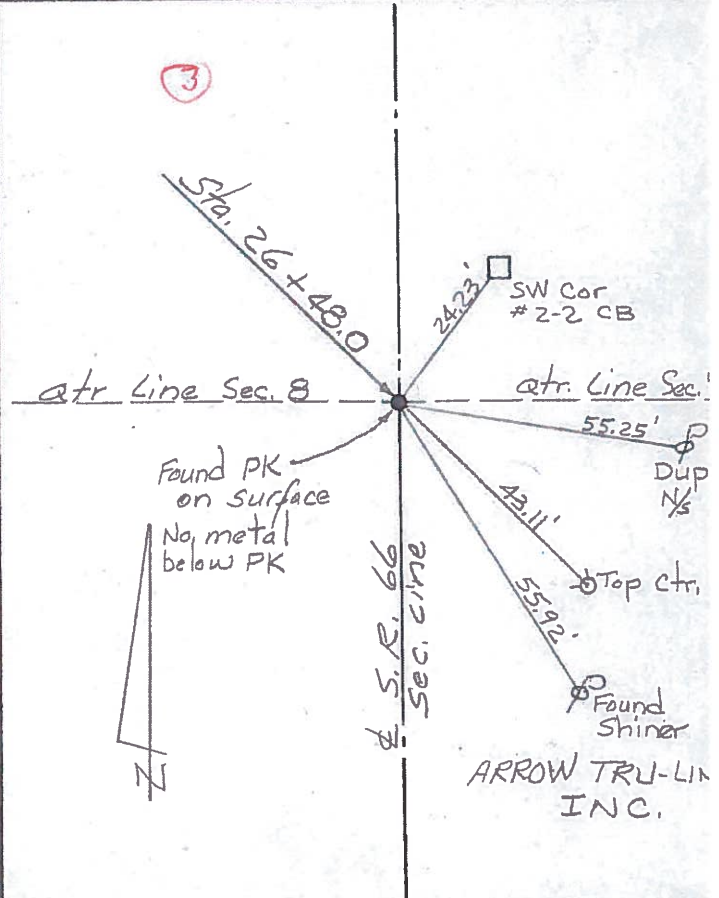 3
Sta. 26 + 48.0
24.23'
SW Cor
#2-2 CB
Qtr Line Sec. 8
Qtr. Line Sec.
55.25'
Dup
N/s
Found PK
on surface
No metal
below PK
43.11'
Top Ctr.
55.92'
Found
Shiner
℄ S.R. 66
Sec. Line
N
ARROW TRU-LIN
INC.